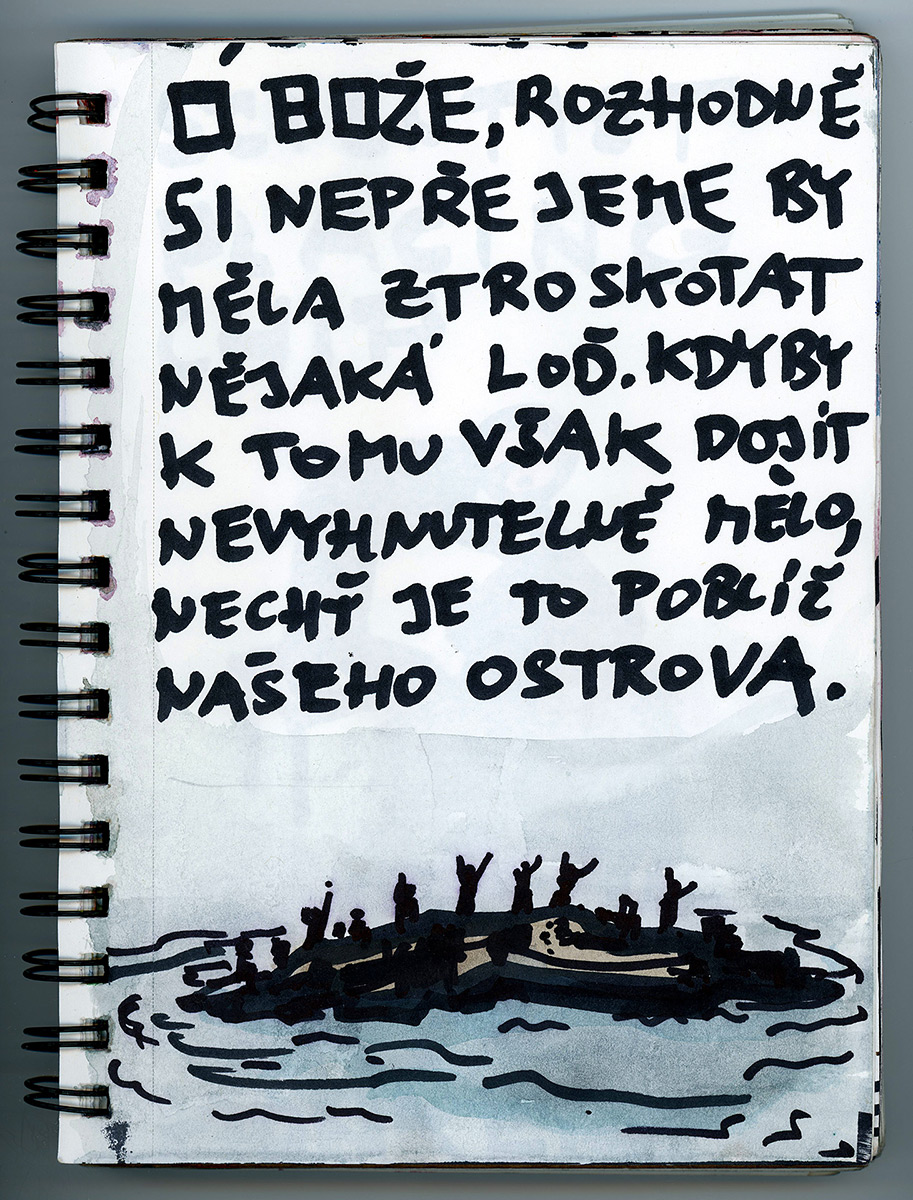 Ó BOŽE, ROZHODNĚ
SI NEPŘEJEME BY
MĚLA ZTROSKOTAT
NĚJAKÁ LOĎ. KDYBY
K TOMU VŠAK DOJÍT
NEVYHNUTELNĚ MĚLO,
NECHŤ JE TO POBLÍŽ
NAŠEHO OSTROVA.